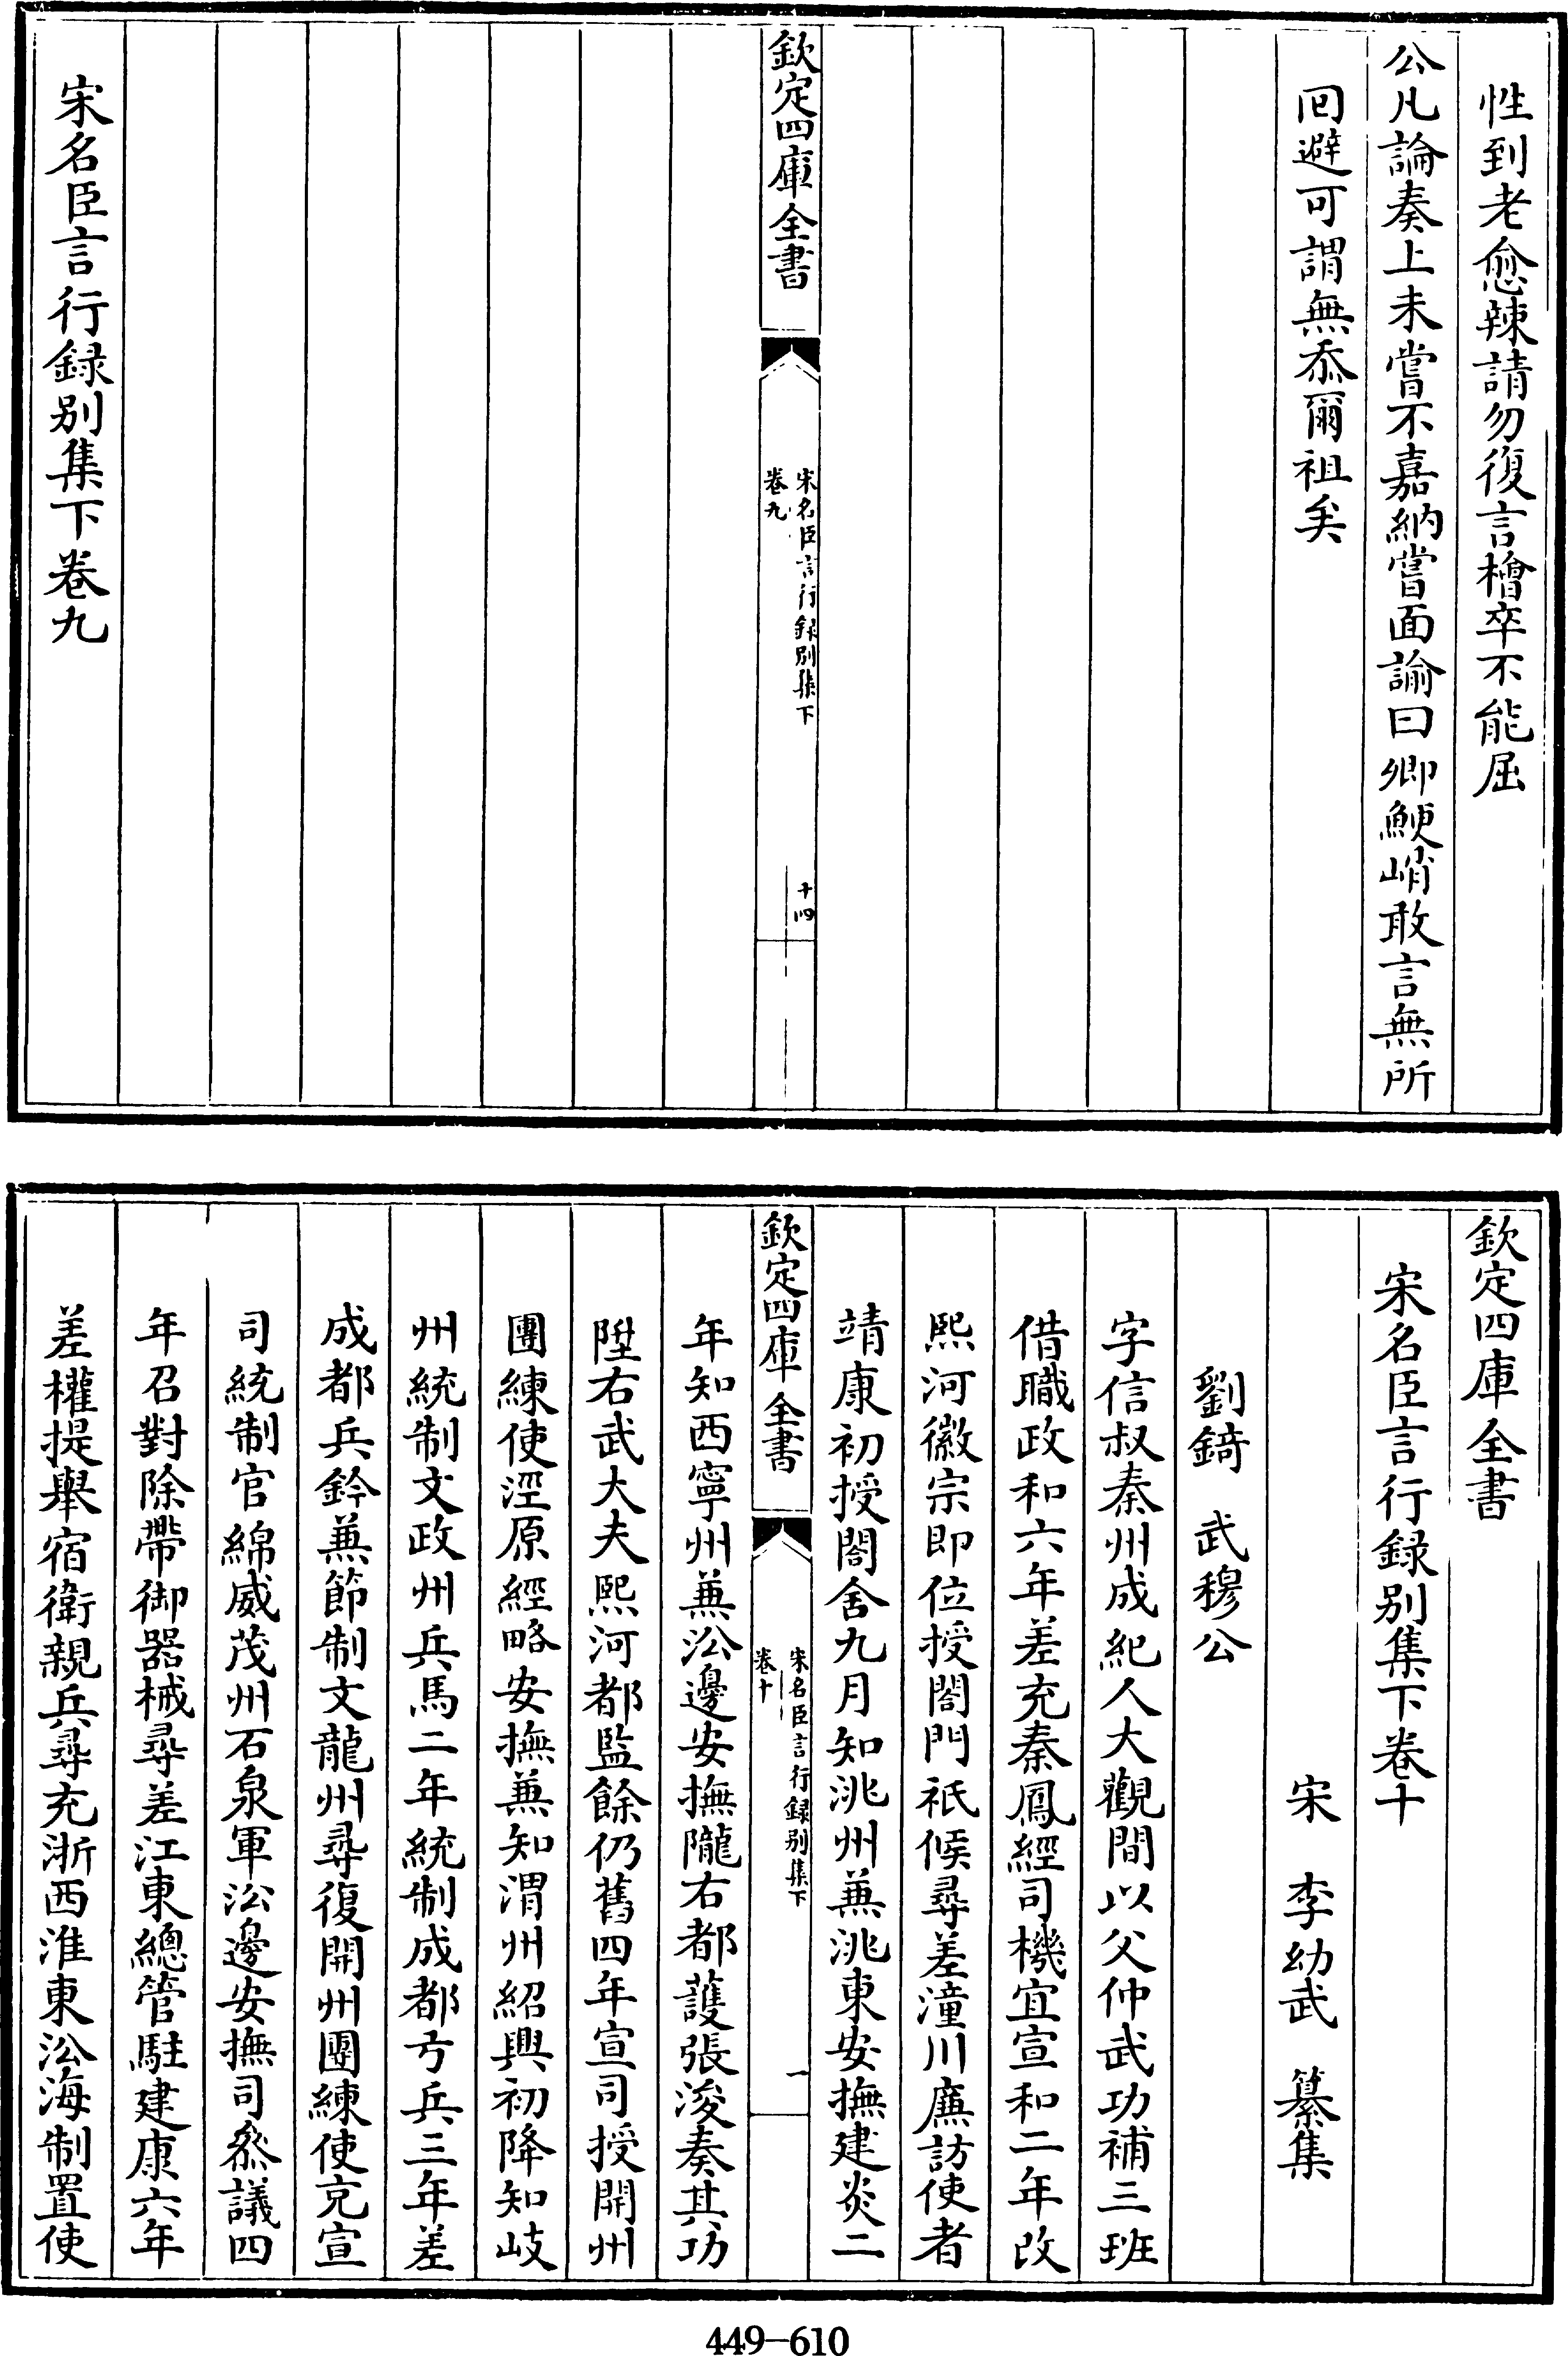 性到老愈辣請勿復言檜卒不能屈
公凡論奏上未嘗不嘉納嘗面諭曰卿鯁峭敢言無所
回避可謂無忝爾祖矣
欽定四庫全書
宋名臣言行録别集下
卷九
十四
宋名臣言行録别集下卷九
欽定四庫全書
宋名臣言行録别集下卷十
宋 李幼武 纂集
劉錡 武穆公
字信叔秦州成紀人大觀間以父仲武功補三班
借職政和六年差充秦鳳經司機宜宣和二年改
熙河徽宗即位授閤門祇候尋差潼川廉訪使者
靖康初授閤舍九月知洮州兼洮東安撫建炎二
欽定四庫全書
宋名臣言行録别集下
卷十
一
年知西寧州兼㳂邊安撫隴右都護張浚奏其功
陞右武大夫熙河都監餘仍舊四年宣司授開州
團練使涇原經略安撫兼知渭州紹興初降知岐
州統制文政州兵馬二年統制成都方兵三年差
成都兵鈐兼節制文龍州尋復開州團練使充宣
司統制官綿威茂州石泉軍㳂邊安撫司叅議四
年召對除帶御器械尋差江東總管駐建康六年
差權提舉宿衛親兵尋充浙西淮東㳂海制置使
449-610